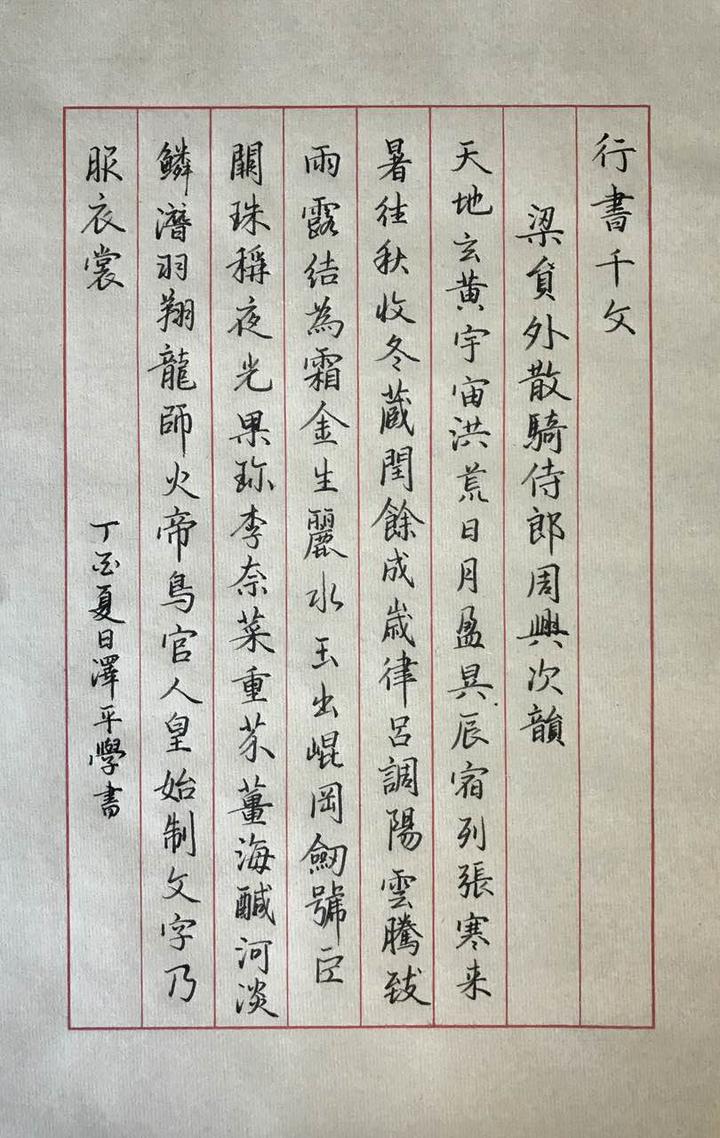 行書千文
梁貟外散騎侍郎周興次韻
天地玄黃宇宙洪荒日月盈昃辰宿列張寒来
暑往秋收冬蔵閏餘成歲律呂調陽雲騰致
雨露結為霜金生麗水玉出崐岡劒號巨
闕珠稱夜光果珎李奈菜重芥薑海醎河淡
鱗潛羽翔龍師火帝鳥官人皇始制文字乃
服衣裳
丁酉夏日澤平學書